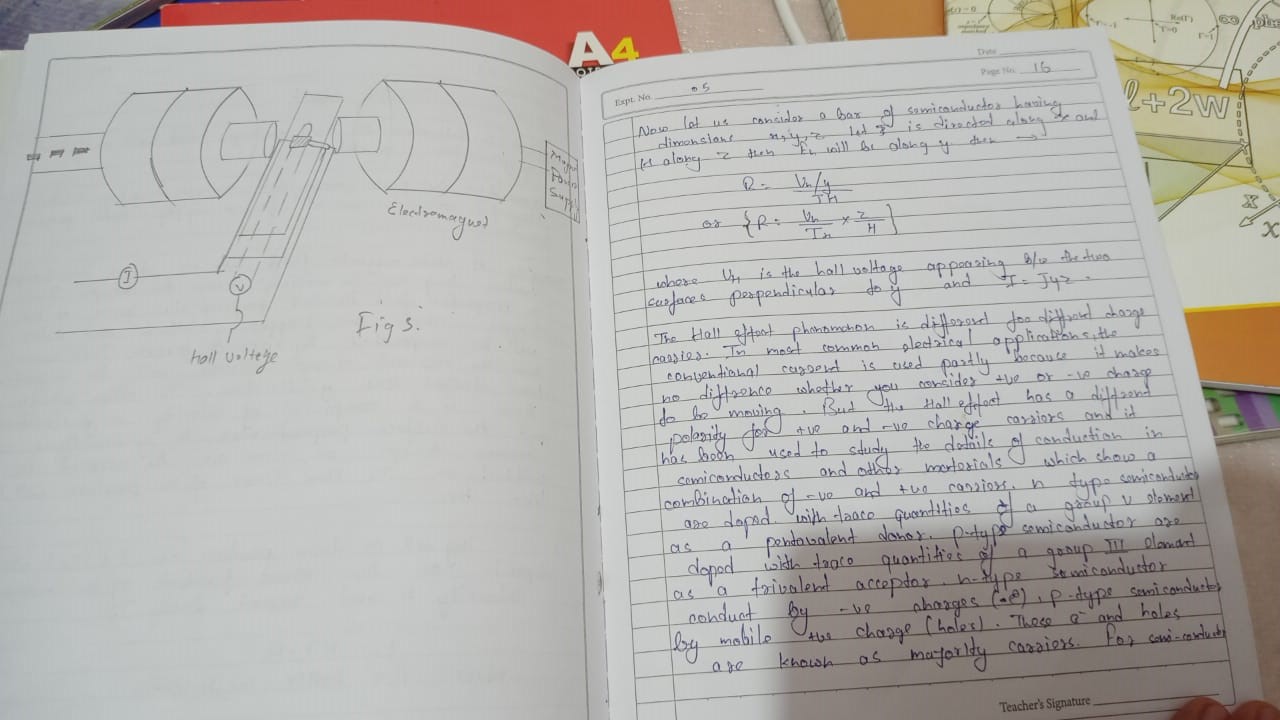 Electromagnet
Power
I
V
Fig 3.
hall voltage
A4
Date
Page No. 16
Expt. No. 05
Now let us consider a bar of semiconductor having
dimensions x, y, z. Let J is directed along x and
H along z then EH will be along y then →
R = VH/y / JH
or { R = VH / IH × z / H ]
where VH is the hall voltage appearing b/w the two
surfaces perpendicular to y and I = Jyz.
The Hall effect phenomenon is different for different charge
carrier. In most common electrical applications, the
conventional current is used partly because it makes
no diffrence whether you consider +ve or -ve charge
to be moving. But the Hall effect has a diffrent
polarity for +ve and -ve charge carriers and it
has been used to study the details of conduction in
semiconductors and other materials which show a
combination of -ve and +ve carriers. n type semiconductor
are doped with trace quantities of a group V element
as a pentavalent donor. p-type semiconductor are
doped with trace quantities of a group III element
as a trivalent acceptor. n-type semiconductor
conduct by -ve charges (-e), p-type semiconductor
by mobile +ve charge (holes). These e⁻ and holes
are known as majority carriers. For semi-conductor
Teacher's Signature
l+2w
X
X